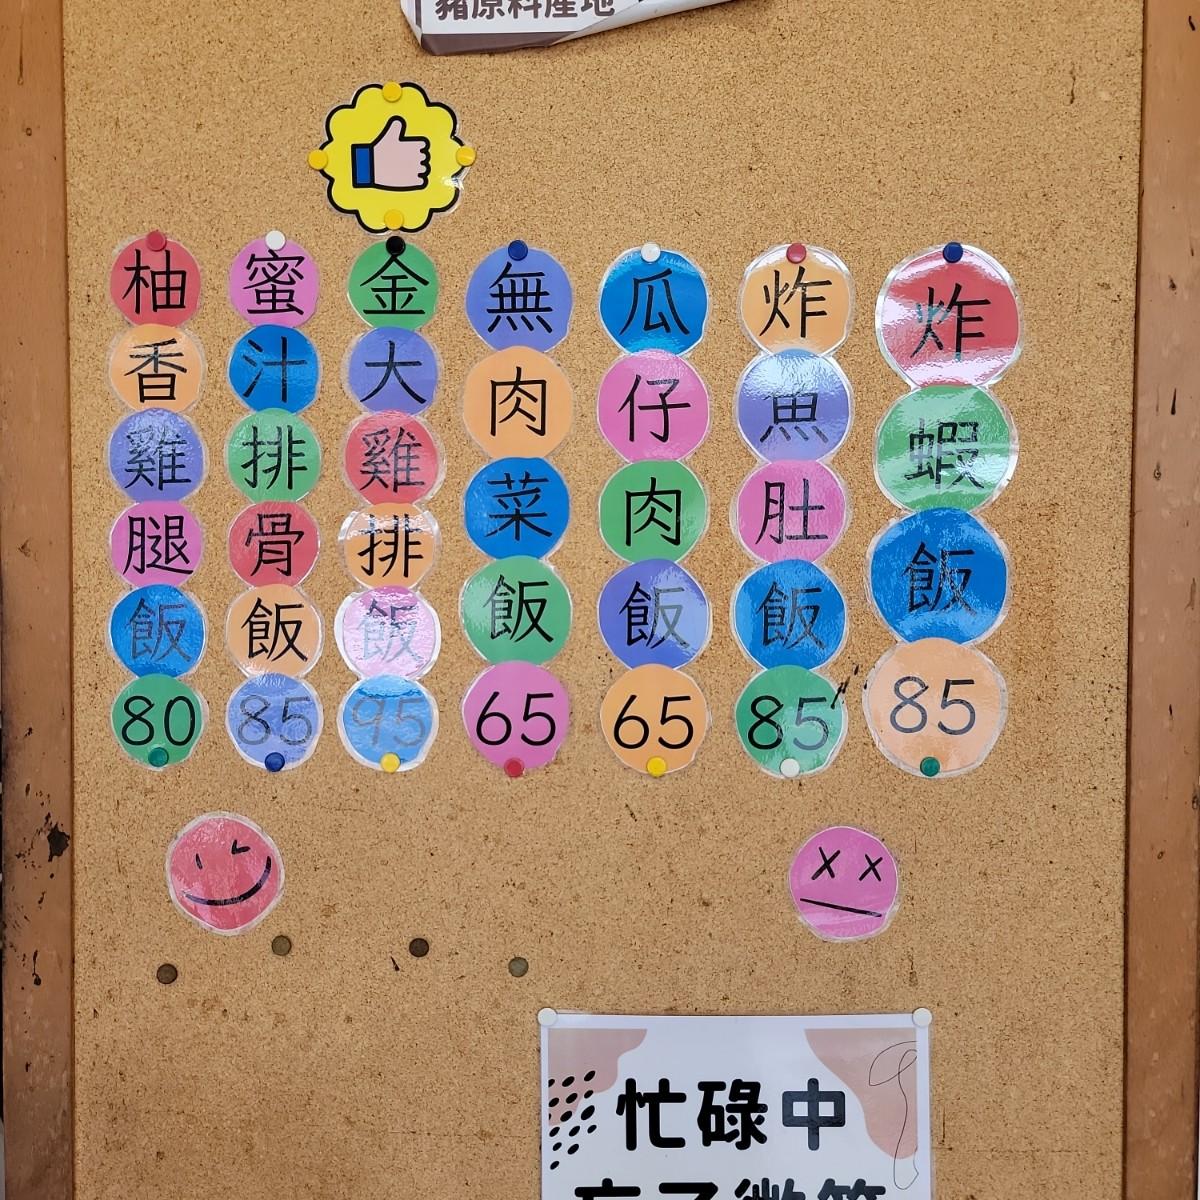 豬原料產地
柚香雞腿飯80
蜜汁排骨飯85
金大雞排飯95
無肉菜飯65
瓜仔肉飯65
炸魚肚飯85
炸蝦飯85
忙碌中
忘了微笑